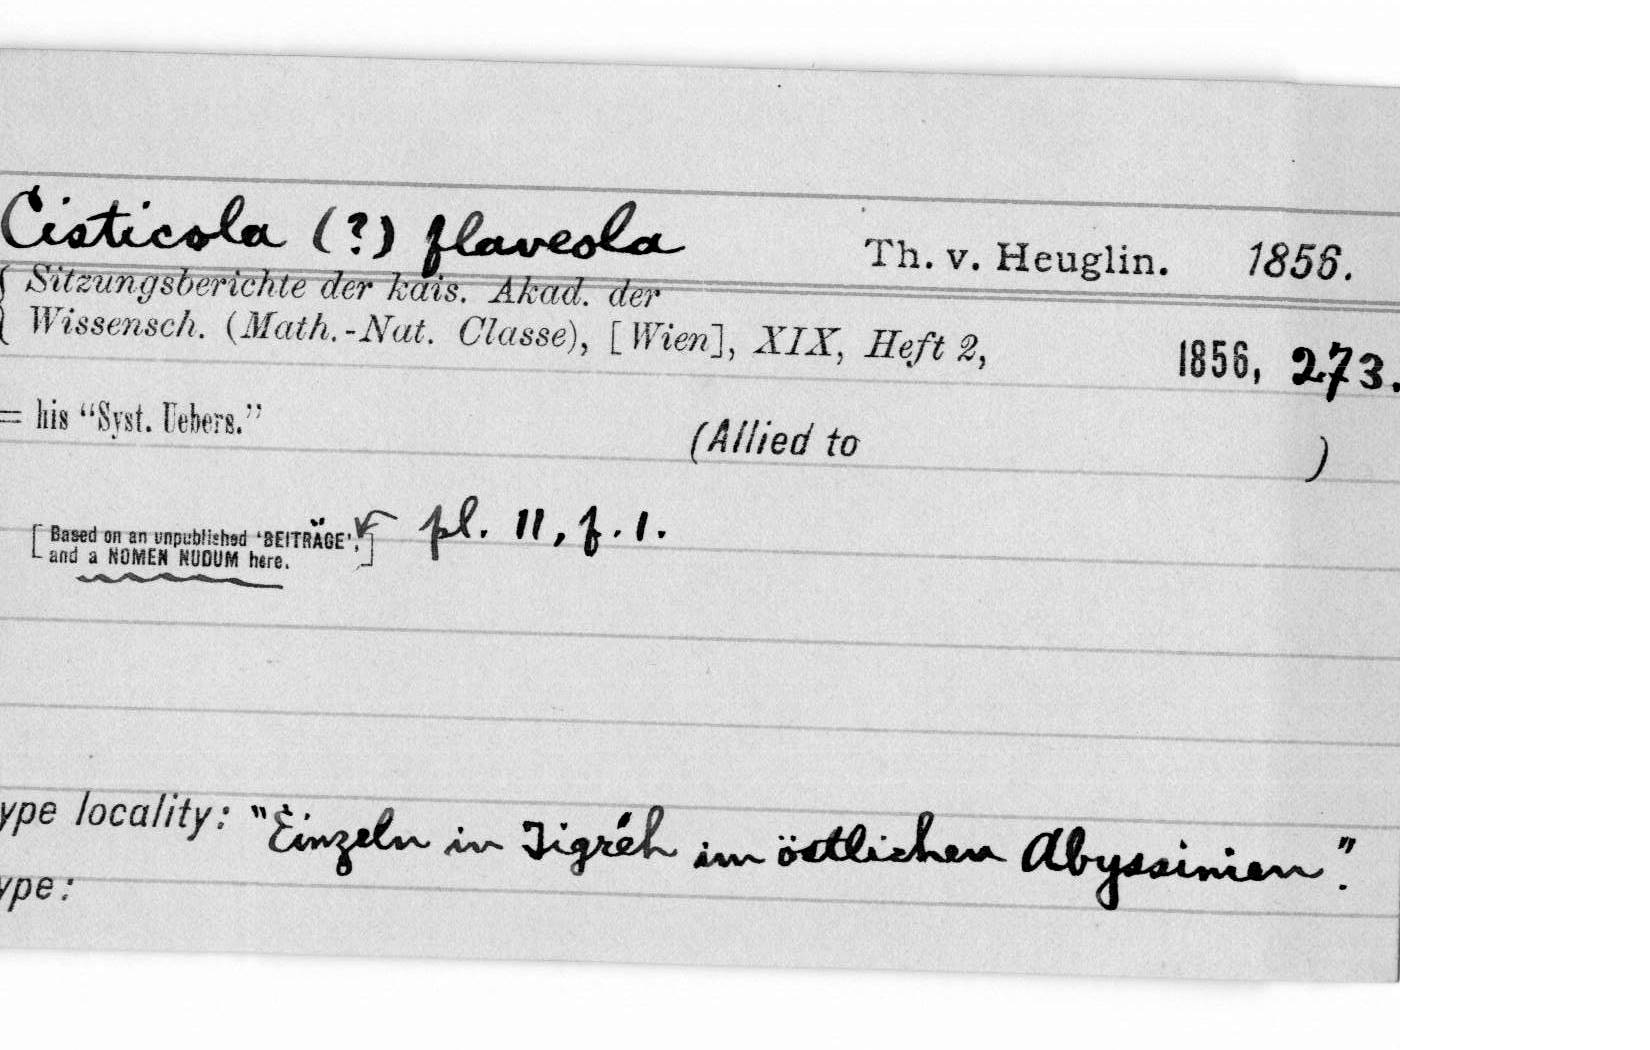 Cisticola (?) flaveola Th. v. Heuglin. 1856.
Sitzungsberichte der kais. Akad. der
Wissensch. (Math.-Nat. Classe), [Wien], XIX, Heft 2, 1856, 273.
= his “Syst. Uebers.”
(Allied to )
[Based on an unpublished ‘BEITRÄGE’, pl. 11, f. 1.
and a NOMEN NUDUM here.]
ype locality: "Einzeln in Tigréh im östlichen Abyssinien".
ype: